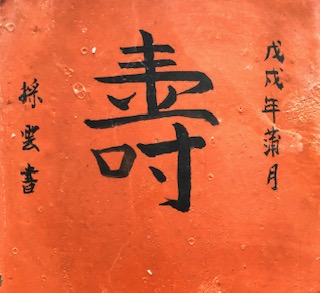 戊戌年蒲月
壽
採雲書